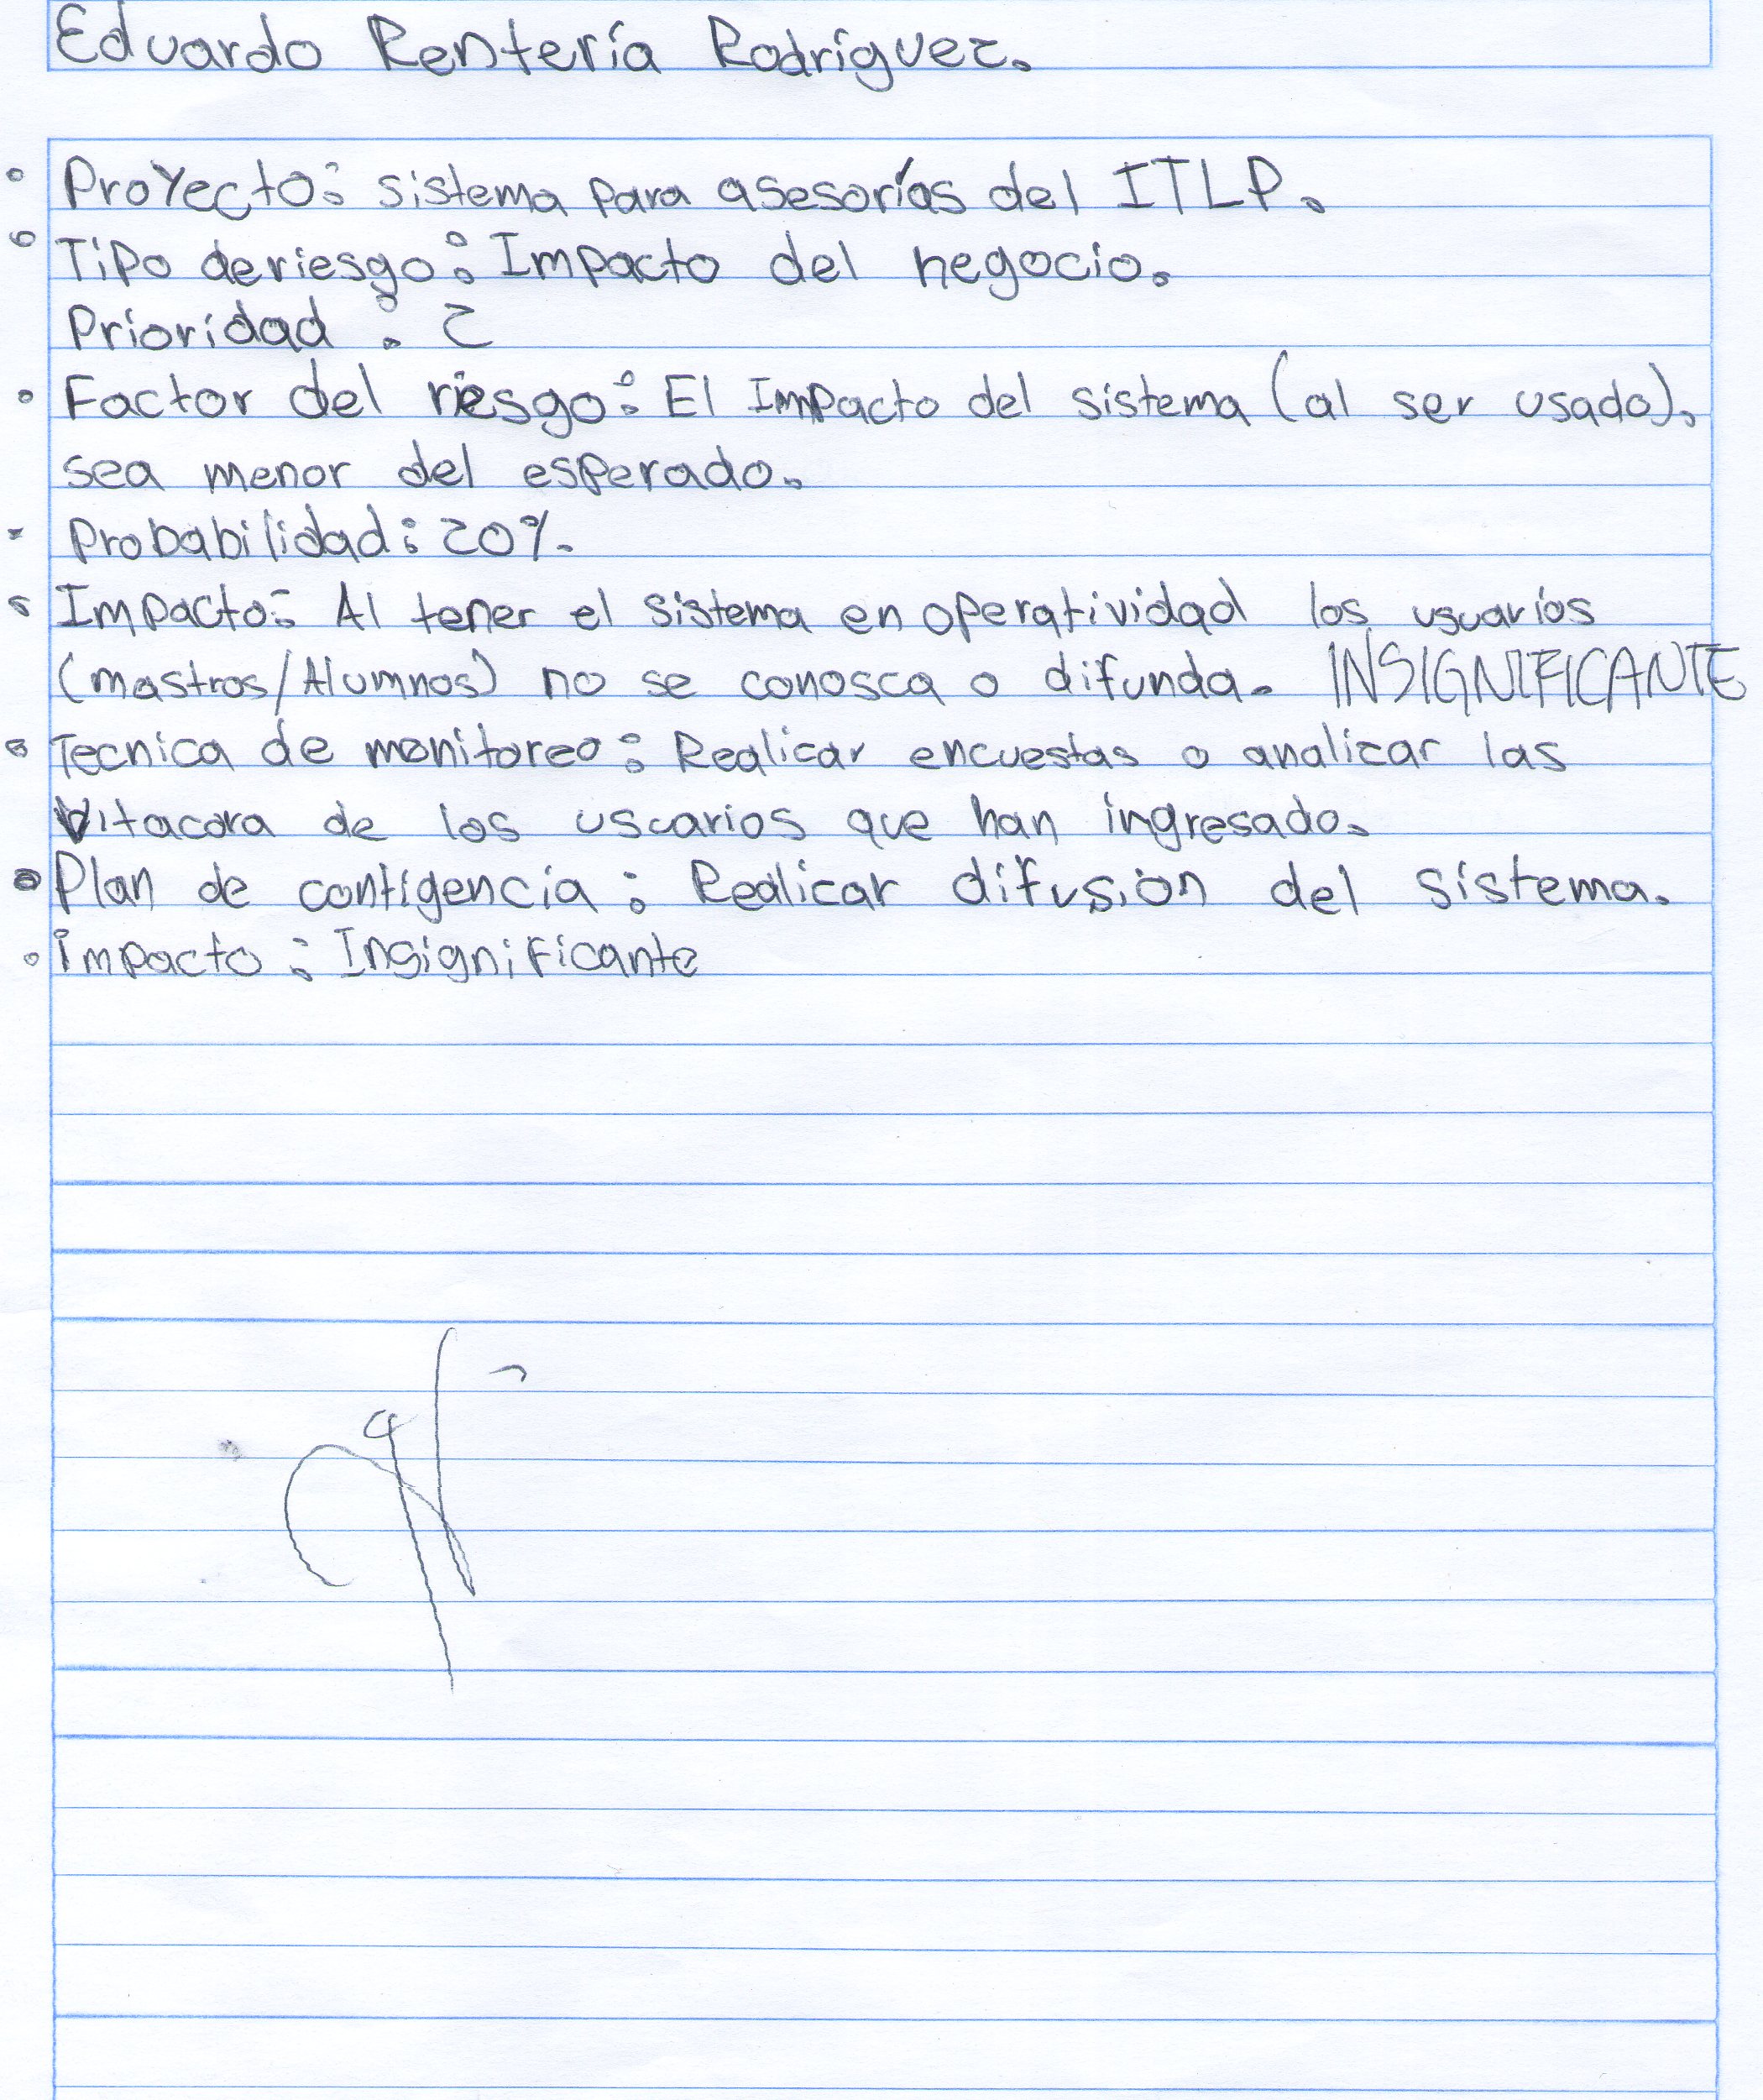 Eduardo Rentería Rodríguez.
• Proyecto: sistema para asesorías del ITLP.
• Tipo de riesgo: Impacto del negocio.
Prioridad : 2
• Factor del riesgo: El Impacto del sistema (al ser usado).
sea menor del esperado.
- Probabilidad: 20%.
• Impacto: Al tener el sistema en operatividad los usuarios
(mastros/Alumnos) no se conosca o difunda. INSIGNIFICANTE
• Tecnica de monitoreo: Realizar encuestas o analizar las
Vitacora de los uscarios que han ingresado.
• Plan de contigencia : Realizar difusión del sistema.
• impacto : Insignificante